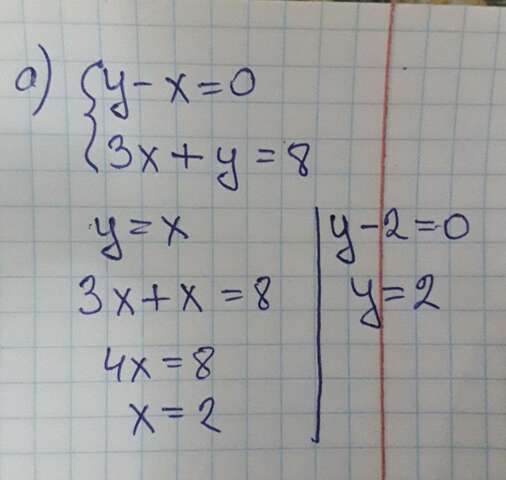 а) { y - x = 0
3x + y = 8
y = x
3x + x = 8
4x = 8
x = 2
y - 2 = 0
y = 2